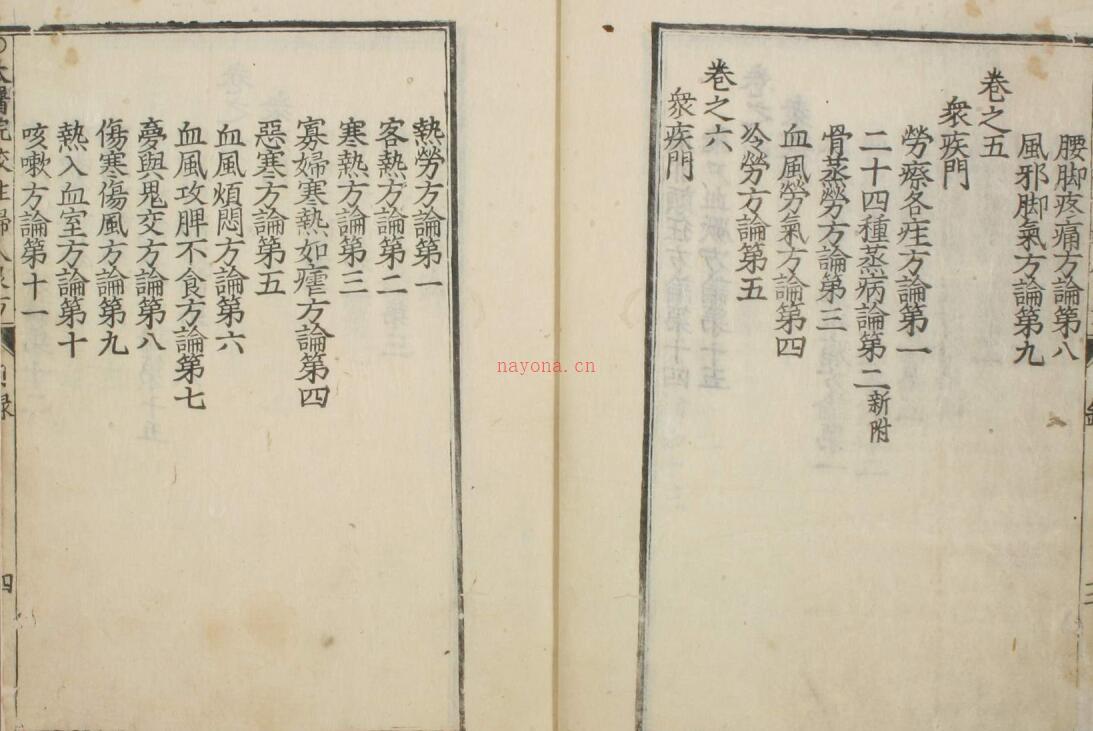 腰脚疼痛方論第八
風邪脚氣方論第九
卷之五
衆疾門
勞瘵各症方論第一
二十四種蒸病論第二新附
骨蒸勞方論第三
血風勞氣方論第四
冷勞方論第五
卷之六
衆疾門
三
熱勞方論第一
客熱方論第二
寒熱方論第三
寡婦寒熱如瘧方論第四
惡寒方論第五
血風煩悶方論第六
血風攻脾不食方論第七
夣與鬼交方論第八
傷寒傷風方論第九
熱入血室方論第十
咳嗽方論第十一
太醫院校註婦人良方 目録 四
nayona.cn